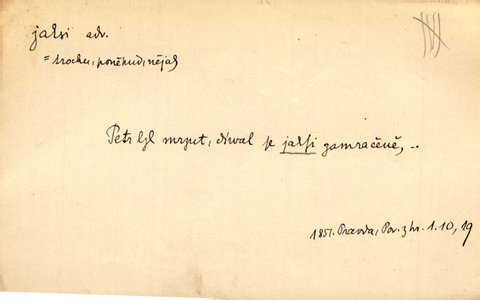 jaksi adv.
= trochu, poněkud, nějak
Petr byl mrzut, díval se jaksi zamračeně, ..
1851. Pravda, Pov. z kr. 1.10, 19